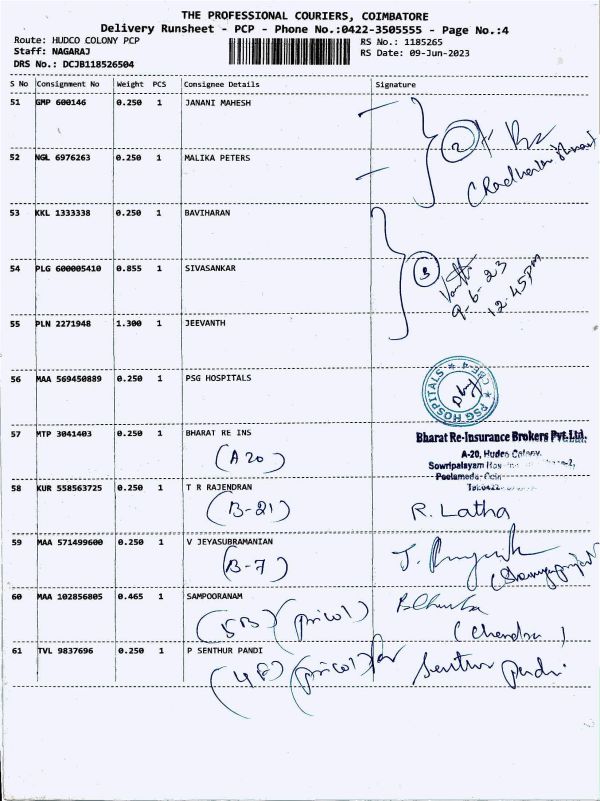 THE PROFESSIONAL COURIERS, COIMBATORE
Delivery Runsheet - PCP - Phone No.:0422-3505555 - Page No.:4
Route: HUDCO COLONY PCP
RS No.: 1185265
Staff: NAGARAJ
RS Date: 09-Jun-2023
DRS No.: DCJB118526504
S No Consignment No Weight PCS Consignee Details Signature
51 GMP 600146 0.250 1 JANANI MAHESH
2
52 NGL 6976263 0.250 1 MALIKA PETERS
53 KKL 1333338 0.250 1 BAVIHARAN
54 PLG 600005410 0.855 1 SIVASANKAR
3
9-6-23
12.45pm
55 PLN 2271948 1.300 1 JEEVANTH
56 MAA 569450889 0.250 1 PSG HOSPITALS
PSG HOSPITALS
57 MTP 3041403 0.250 1 BHARAT RE INS
(A20)
Bharat Re-Insurance Brokers Pvt.Ltd.
A-20, Hudco Colony,
Sowripalayam
58 KUR 558563725 0.250 1 T R RAJENDRAN
(B-21)
R. Latha
59 MAA 571499600 0.250 1 V JEYASUBRAMANIAN
(B-7)
60 MAA 102856805 0.465 1 SAMPOORANAM
(5B) (pricol)
(Chandra)
61 TVL 9837696 0.250 1 P SENTHUR PANDI
(pricol)
Senthur Pandi